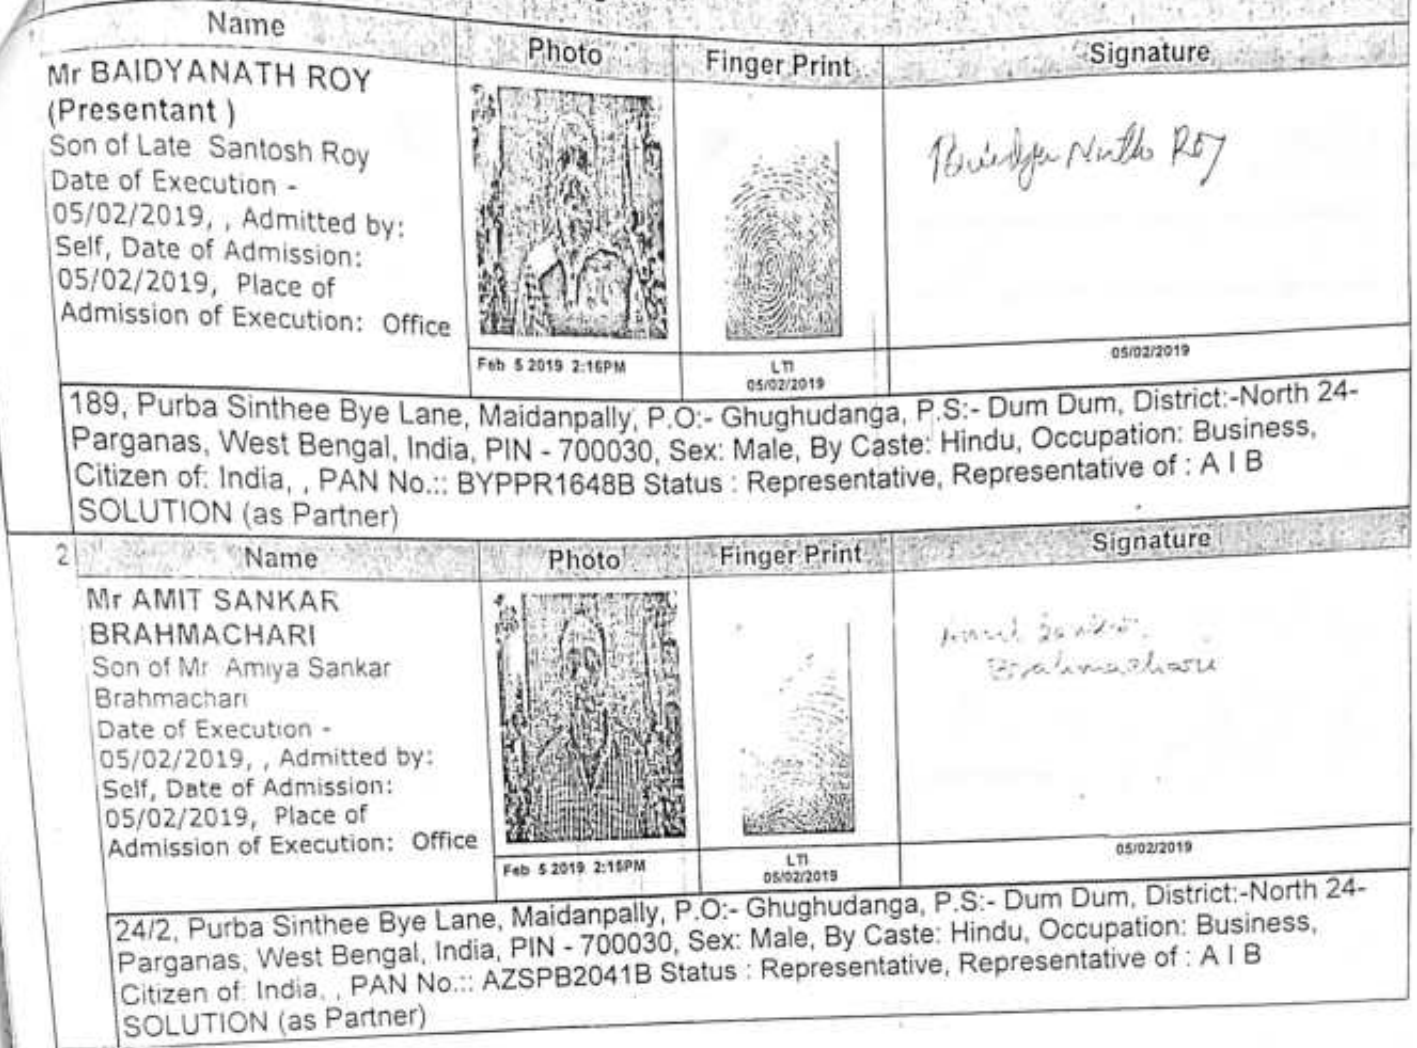 Name
Photo
Finger Print
Signature
Mr BAIDYANATH ROY
(Presentant )
Son of Late Santosh Roy
Date of Execution -
05/02/2019, , Admitted by:
Self, Date of Admission:
05/02/2019, Place of
Admission of Execution: Office
Roy
Feb 5 2019 2:16PM
LTI
05/02/2019
05/02/2019
189, Purba Sinthee Bye Lane, Maidanpally, P.O:- Ghughudanga, P.S:- Dum Dum, District:-North 24-
Parganas, West Bengal, India, PIN - 700030, Sex: Male, By Caste: Hindu, Occupation: Business,
Citizen of: India, , PAN No.:: BYPPR1648B Status : Representative, Representative of : A I B
SOLUTION (as Partner)
2
Name
Photo
Finger Print
Signature
Mr AMIT SANKAR
BRAHMACHARI
Son of Mr Amiya Sankar
Brahmachari
Date of Execution -
05/02/2019, , Admitted by:
Self, Date of Admission:
05/02/2019, Place of
Admission of Execution: Office
Brahmachari
Feb 5 2019 2:15PM
LTI
05/02/2019
05/02/2019
24/2, Purba Sinthee Bye Lane, Maidanpally, P.O:- Ghughudanga, P.S:- Dum Dum, District:-North 24-
Parganas, West Bengal, India, PIN - 700030, Sex: Male, By Caste: Hindu, Occupation: Business,
Citizen of: India, , PAN No.:: AZSPB2041B Status : Representative, Representative of : A I B
SOLUTION (as Partner)